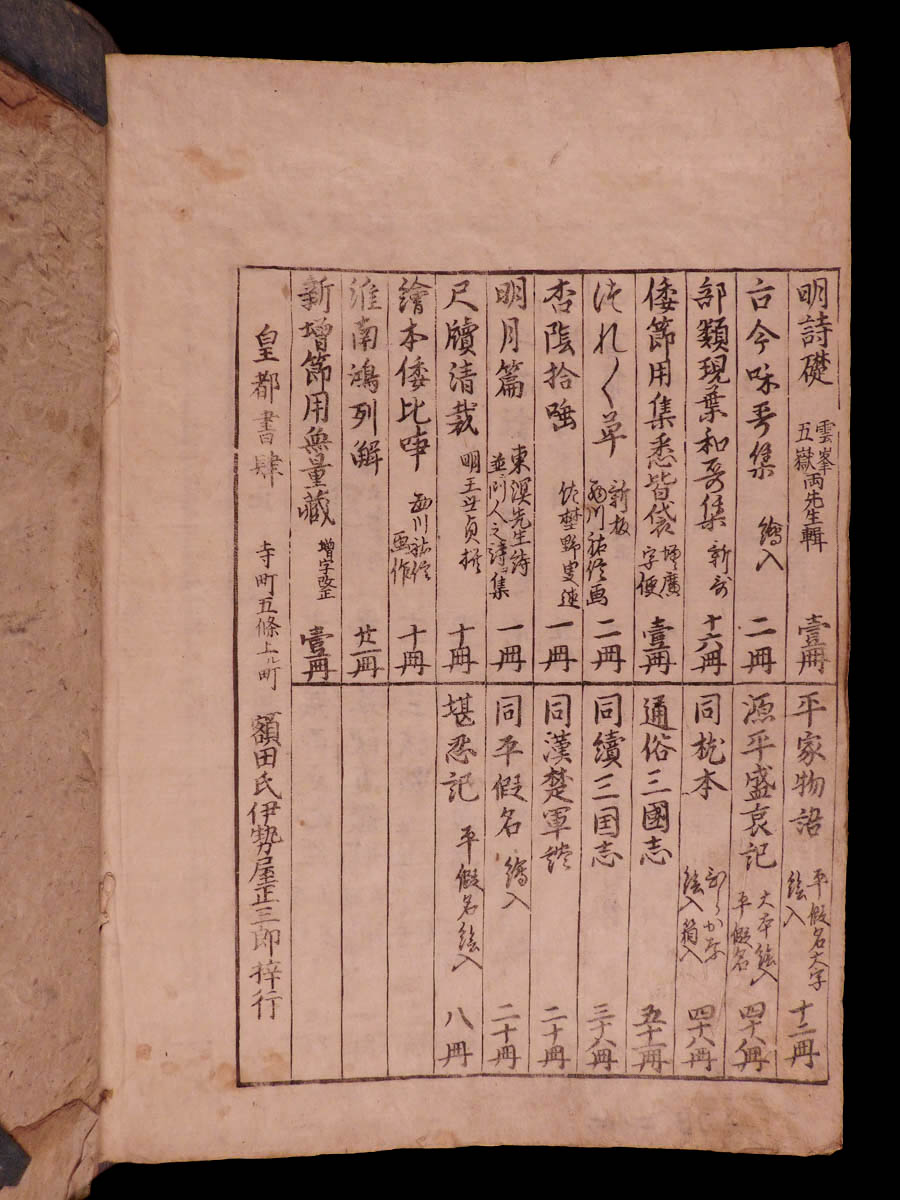 明詩礎 雲峯五嶽両先生輯 壹冊
古今咏哥集 繪入 二冊
部類現葉和哥集 新刻 十六冊
倭節用集悉皆袋 増廣字便 壹冊
つれ〱草 新板西川祐信画 二冊
杏隂拾唾 野叟述 一冊
明月篇 東溟先生詩並門人之詩集 一冊
尺牘清裁 明王世貞撰 十冊
繪本倭比事 西川祐信画作 十冊
淮南鴻列解 廿一冊
新増節用無量藏 増字改正 壹冊
平家物語 平假名大字絵入 十二冊
源平盛衰記 大本絵入平假名 四十八冊
同枕本 ひらかな絵入箱入 四十八冊
通俗三國志 五十一冊
同續三国志 三十八冊
同漢楚軍談 二十冊
同平假名 繪入 二十冊
堪忍記 平假名絵入 八冊
皇都書肆 寺町五條上ル町 額田氏伊勢屋正三郎梓行